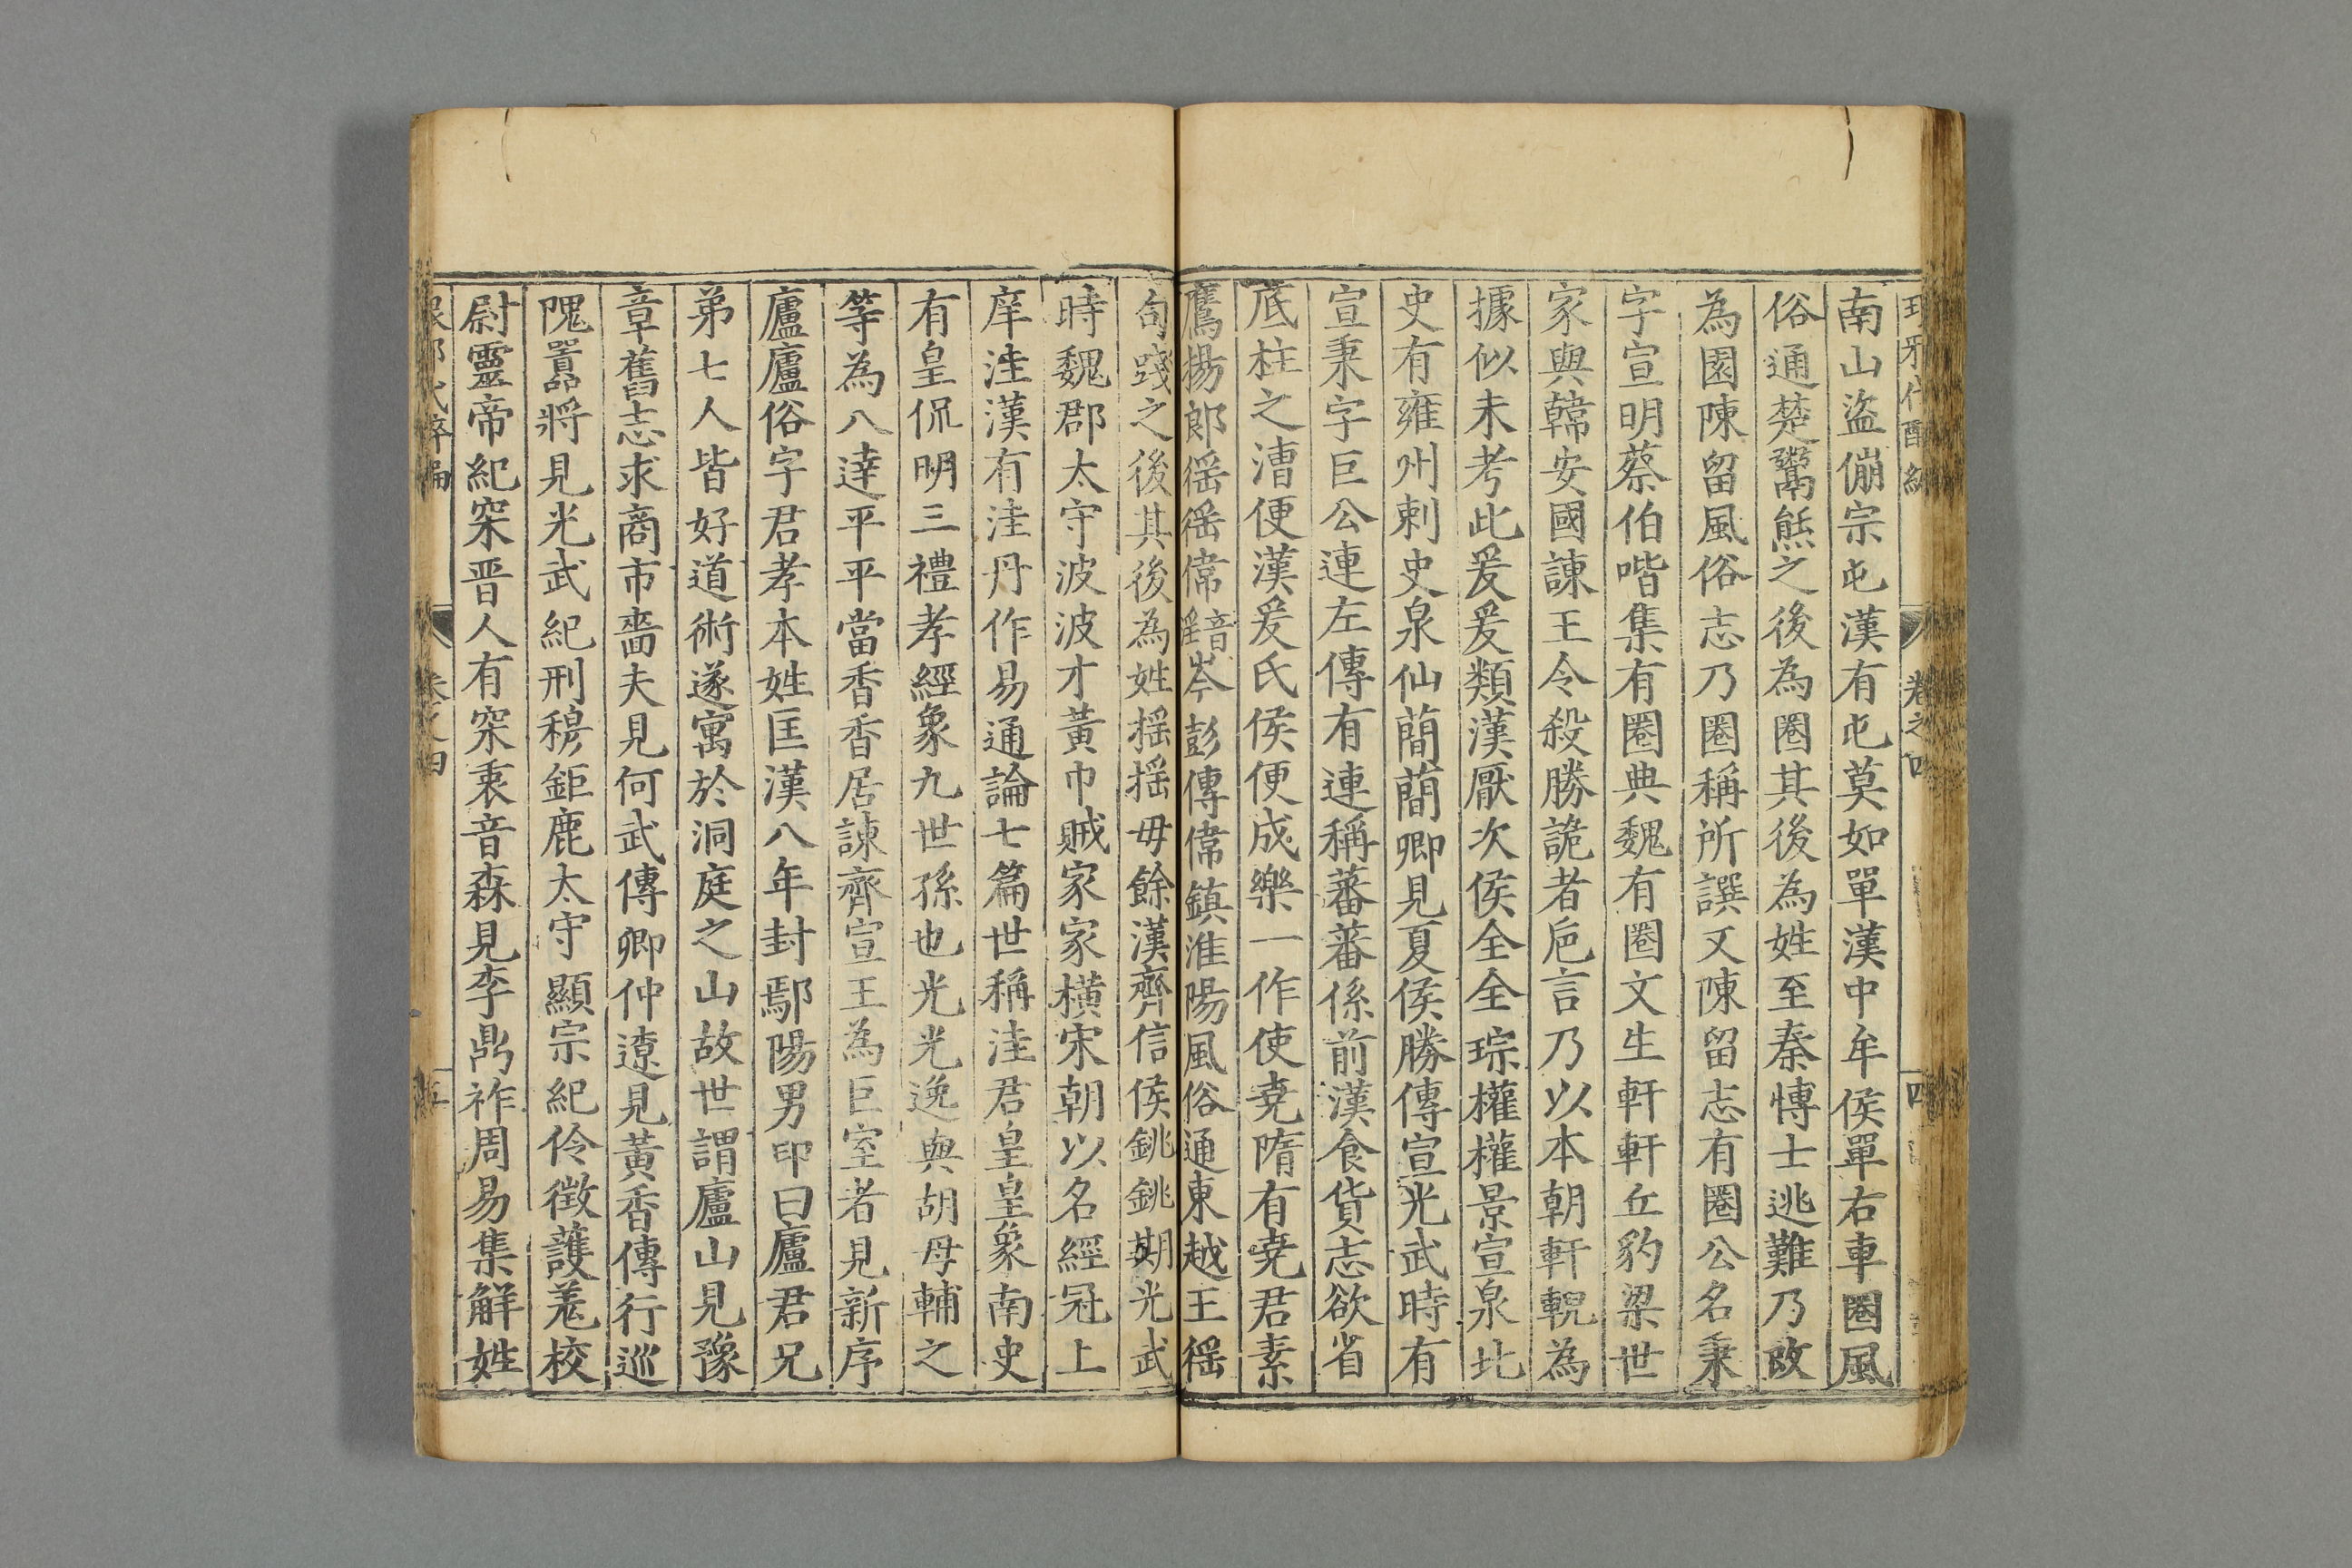 南山盜傰宗屯漢有屯莫如單漢中牟侯單右車圈風
俗通楚鬻熊之後為圈其後為姓至秦博士逃難乃改
為園陳留風俗志乃圈稱所譔又陳留志有圈公名秉
字宣明蔡伯喈集有圈典魏有圈文生軒軒丘豹梁世
家與韓安國諫王令殺勝詭者巵言乃以本朝軒輗為
據似未考此爰爰類漢厭次侯全全琮權權景宣泉北
史有雍州刺史泉仙蕳蕳卿見夏侯勝傳宣光武時有
宣秉字巨公連左傳有連稱蕃蕃係前漢食貨志欲省
底柱之漕便漢爰氏侯便成樂一作使堯隋有堯君素
鷹揚郎徭徭偉音瑤岑彭傳偉鎮淮陽風俗通東越王徭
句踐之後其後為姓揺揺毋餘漢齊信侯銚銚期光武
時魏郡太守波波才黃巾賊家家橫宋朝以名經冠上
庠洼漢有洼丹作易通論七篇世稱洼君皇皇象南史
有皇侃明三禮孝經象九世孫也光光逸與胡母輔之
等為八達平平當香香居諫齊宣王為巨室者見新序
廬廬俗字君孝本姓匡漢八年封鄢陽男印曰廬君兄
弟七人皆好道術遂寓於洞庭之山故世謂廬山見豫
章舊志求商市嗇夫見何武傳卿仲遼見黃香傳行巡
隗囂將見光武紀刑穆鉅鹿太守顯宗紀伶徴護羗校
尉靈帝紀罙晋人有罙秉音森見李鼎祚周易集解姓
卷之四
四